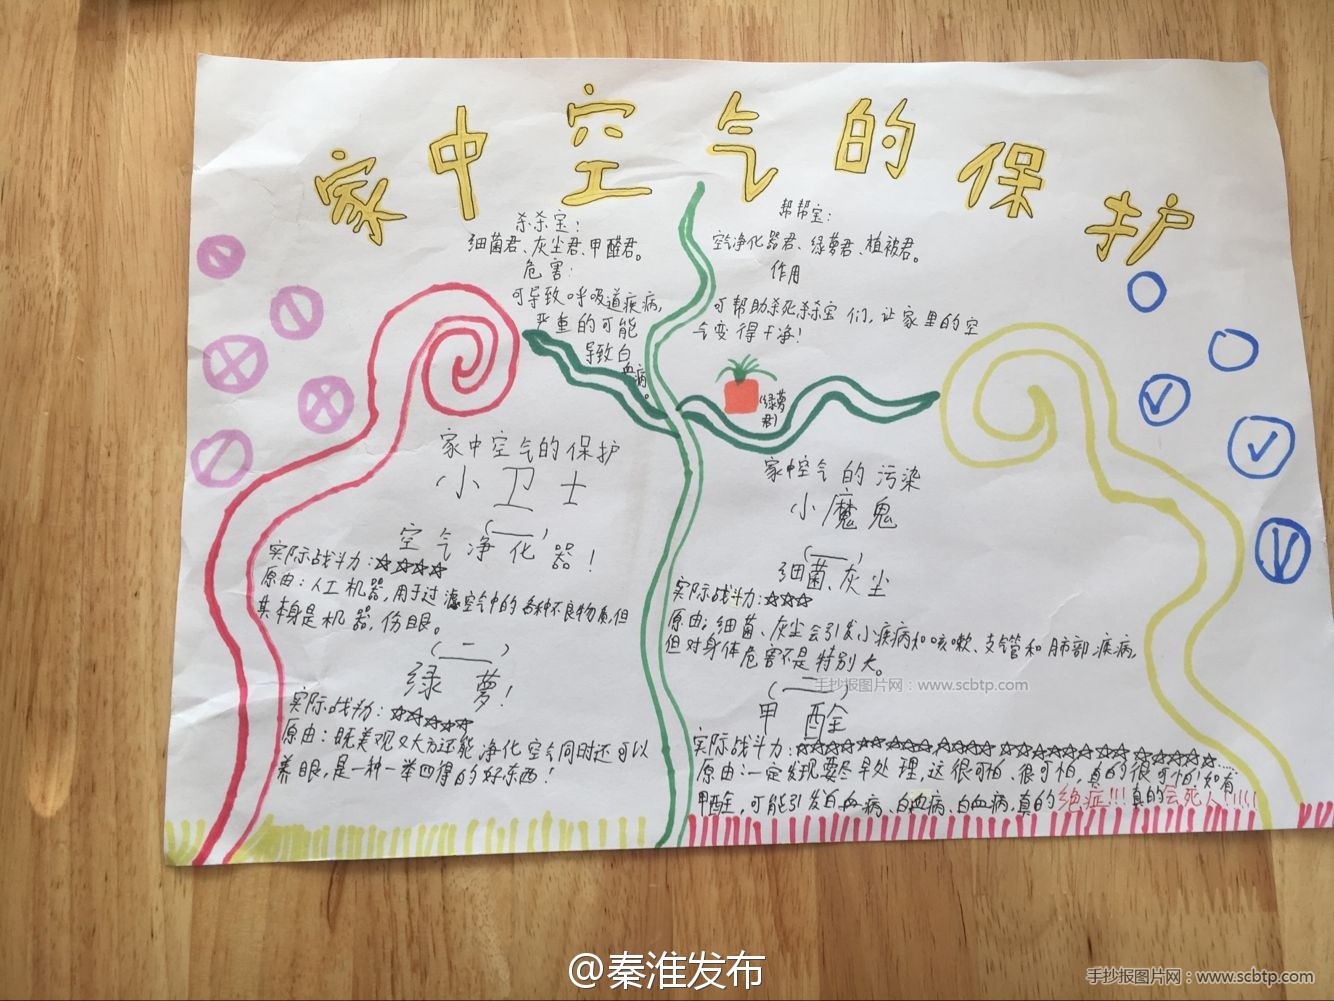 家中空气的保护
杀杀宝:
细菌君、灰尘君、甲醛君。
危害:
可导致呼吸道疾病,
严重的可能
导致白
血病。
帮帮宝:
空气净化器君、绿萝君、植被君。
作用
可帮助杀死杀杀宝们,让家里的空
气变得干净!
(绿萝
君)
家中空气的保护
小卫士
(一)
空气净化器!
实际战斗力:☆☆☆☆
原由:人工机器,用于过滤空气中的各种不良物质,但
其本身是机器,伤眼。
(二)
绿萝!
实际战力:☆☆☆☆☆
原由:既美观又大方还能净化空气同时还可以
养眼,是一种一举四得的好东西!
家中空气的污染
小魔鬼
(一)
细菌、灰尘
实际战斗力:☆☆☆
原由:细菌、灰尘会引发小疾病和咳嗽、支气管和肺部疾病,
但对身体危害不是特别大。
(二)
甲醛
实际战斗力:☆☆☆☆☆☆☆☆☆☆☆☆☆☆☆☆☆☆☆☆☆☆☆☆☆☆……
原由:一定发现要尽早处理,这很可怕、很可怕,真的很可怕!如有
甲醛,可能引发白血病、白血病、白血病,真的绝症!!!真的会死人!!!!!
手抄报图片网:www.scbtp.com
@秦淮发布
手抄报图片网:www.scbtp.com